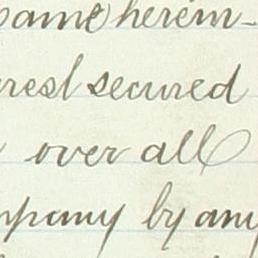 same herein-
rest secured
over all
mpany by any